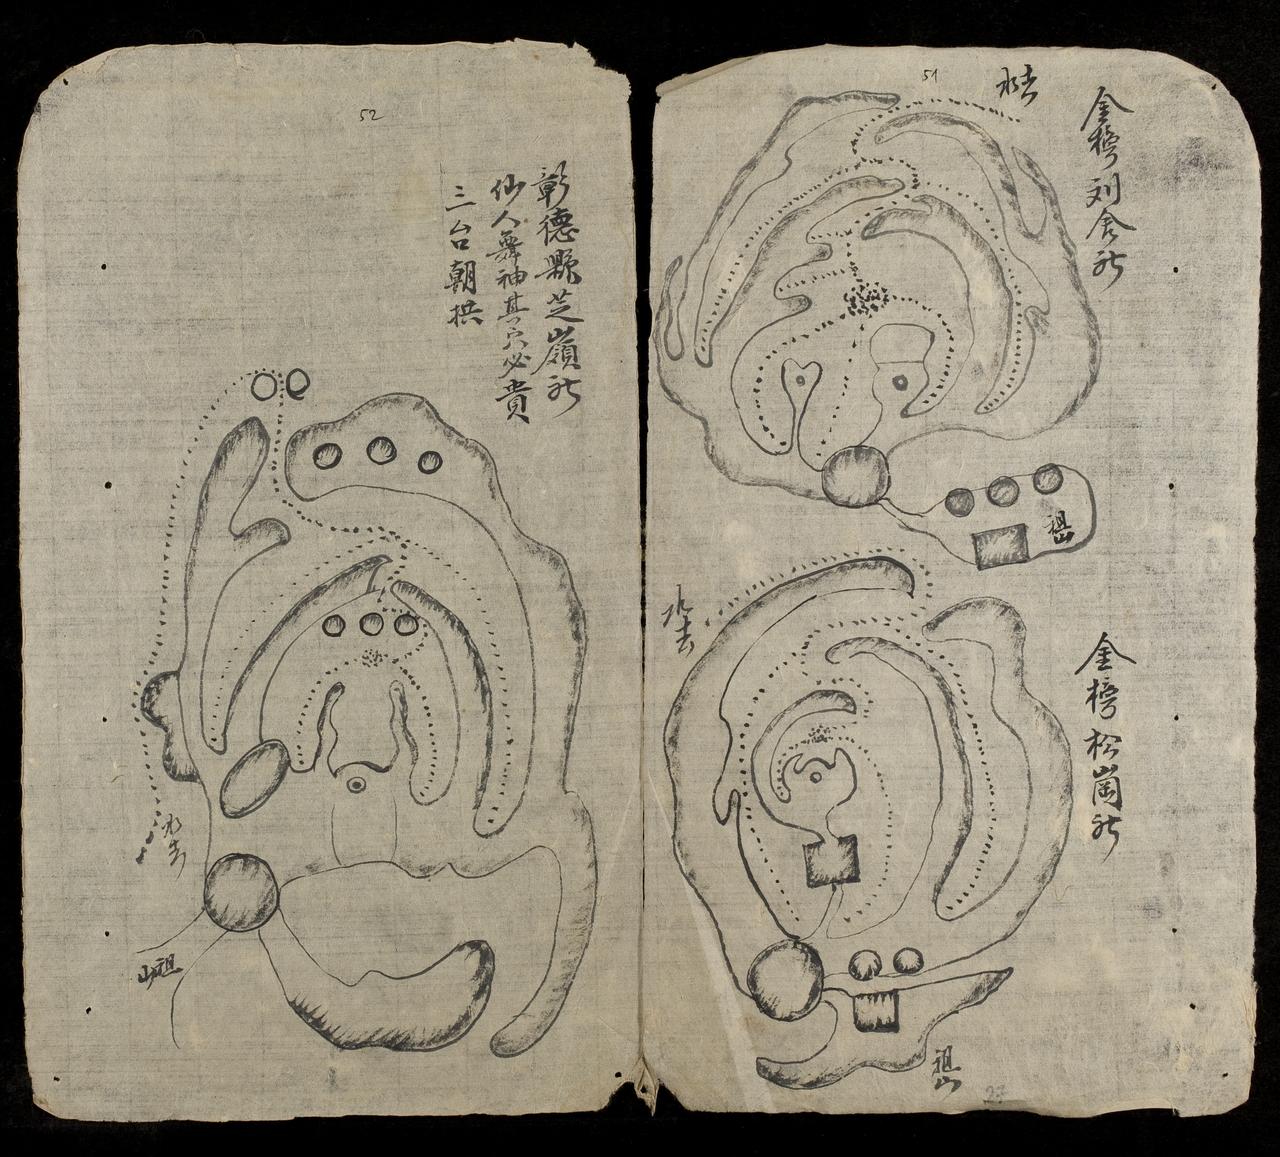 51
水去
金榜刘舍社
祖山
水去
金榜松崗社
祖山
27
52
彰德縣芝嶺社
仙人舞袖其穴必貴
三台朝拱
水去
祖山